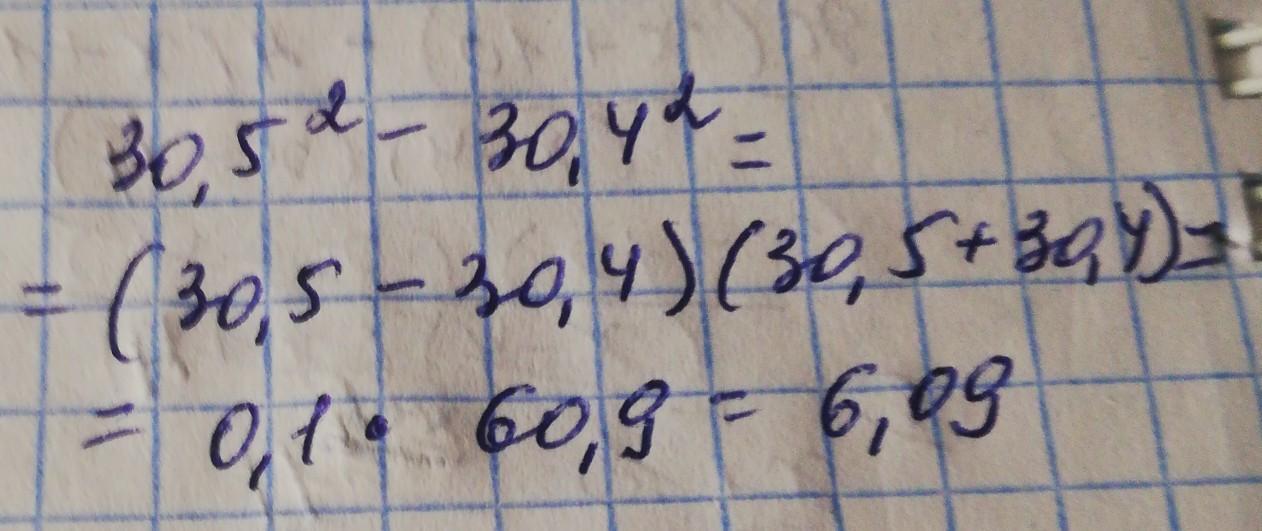 30,5² - 30,4² =
= (30,5 - 30,4)(30,5 + 30,4) =
= 0,1 · 60,9 = 6,09